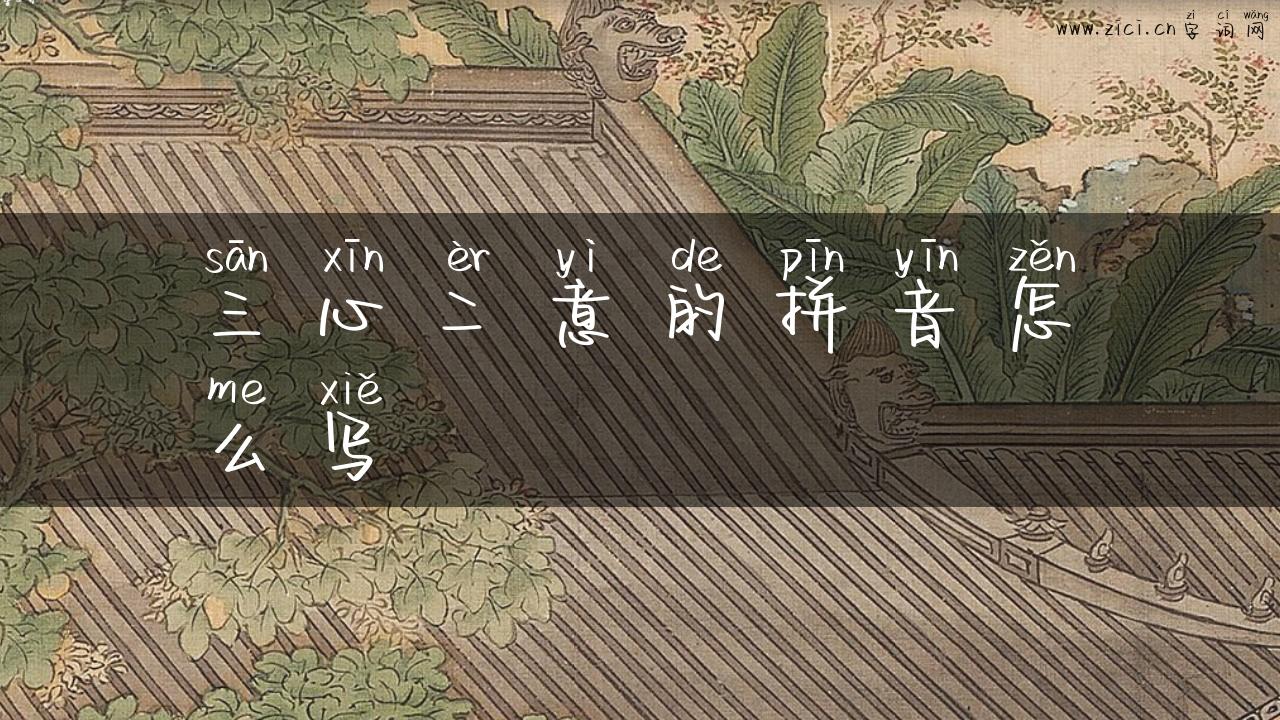 zì cí wǎng
www.zici.cn 字词网
sān xīn èr yì de pīn yīn zěn
三心二意的拼音怎
me xiě
么写